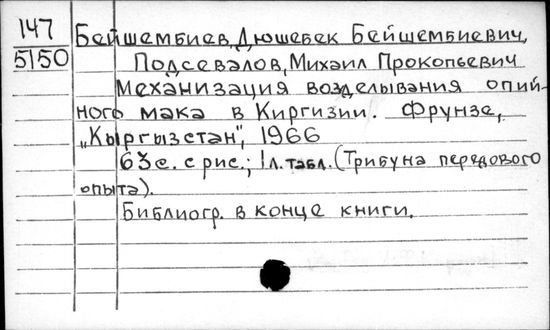 147
5150
Бейшембиев, Дюшебек Бейшембиевич,
Подсевалов, Михаил Прокопьевич
Механизация возделывания опий-
ного мака в Киргизии. Фрунзе,
„Кыргызстан", 1966
63с. с рис.; 1 л. табл. (Трибуна передового
опыта).
Библиогр. в конце книги.